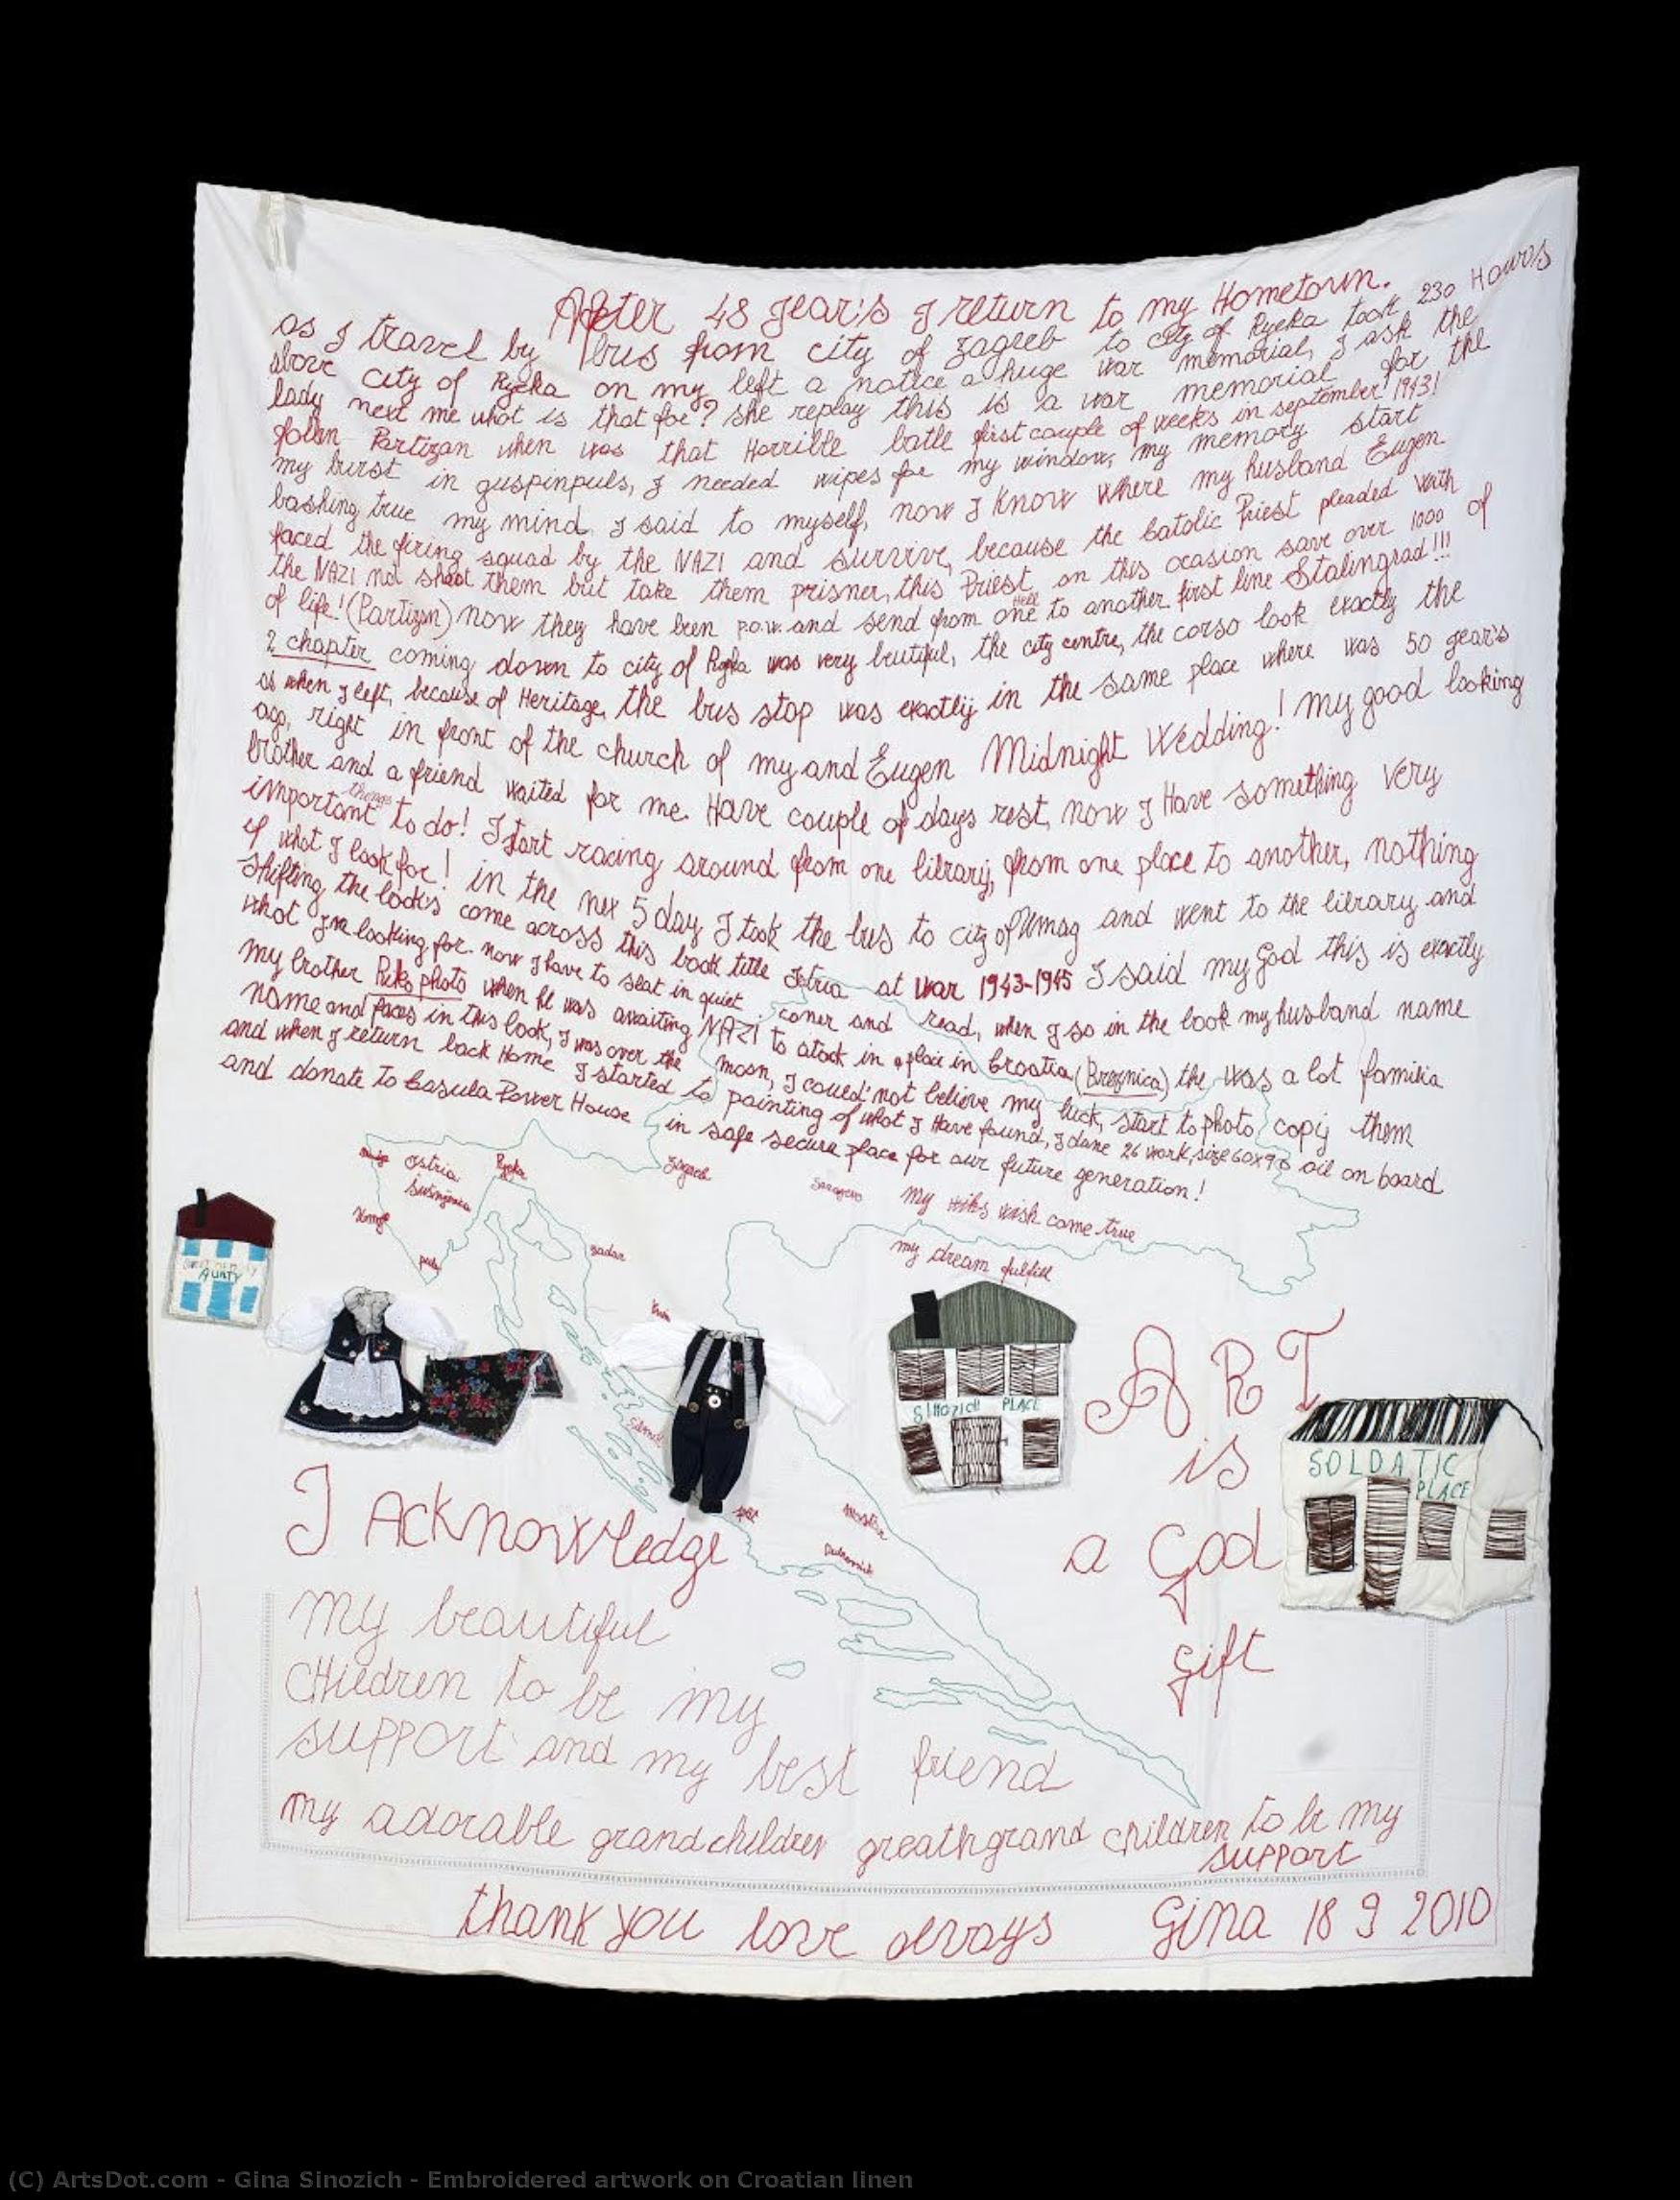 After 48 year's I return to my Hometown.
as I travel by bus from city of Zagreb to city of Ryeka took 230 Hours
above city of Ryeka on my left a notice a huge war memorial, I ask the
lady next me what is that for? she replay this is a war memorial for the
follen Partizan when was that Horrible batle first couple of weeks in september 1943!
my burst in guspinpuls, I needed wipes for my window, my memory start
bashing true my mind. I said to myself, now I know where my husband Eugen
faced the firing squad by the NAZI and survive, because the Catolic Priest pleaded with
the NAZI not shoot them but take them prisner, this Priest on this ocasion save over 1000 of
of life! (Partizan) now they have been P.O.W. and send from one Hell to another first line Stalingrad!!!
2 chapter coming down to city of Ryeka was very beutiful, the city centre, the corso look exactly the
as when I left, because of Heritage, the bus stop was exactlij in the same place where was 50 year's
ago, right in front of the church of my and Eugen Midnight Wedding! my good looking
brother and a friend waited for me. Have couple of days rest, now I Have something very
important things to do! I start racing around from one librarij, from one place to another, nothing
of what I look for! in the nex 5 day I took the bus to city of Umag and went to the library and
shifting the book's come across this book title Istria at war 1943-1945 I said my God this is exactly
what I'm looking for. now I have to seat in quiet coner and read, when I so in the book my husband name
my brother Riko photo when he was awaiting NAZI to atack in a place in Croatia (Breznica) the was a lot familia
name and faces in this book, I was over the moon, I could not believe my luck, start to photo copij them
and when I return back Home I started to painting of what I Have found, I done 26 work, size 60x90 oil on board
and donate to Casula Power House in safe secure place for our future generation!
Istria
Ryeka
Zagreb
Sarajevo
my wish come true
Sušnjevica
my dream fulfill
Zadar
pula
AUNTY
Knin
ART
SINOZICH PLACE
Šibenik
is
SOLDATIC
PLACE
I Acknowledge
split
Mostar
Dubrovnik
a God
my beautiful
gift
children to be my
support and my best friend
my adorable grandchildren greathgrand children to be my
support
thank you love always Gina 18 9 2010
(C) ArtsDot.com - Gina Sinozich - Embroidered artwork on Croatian linen